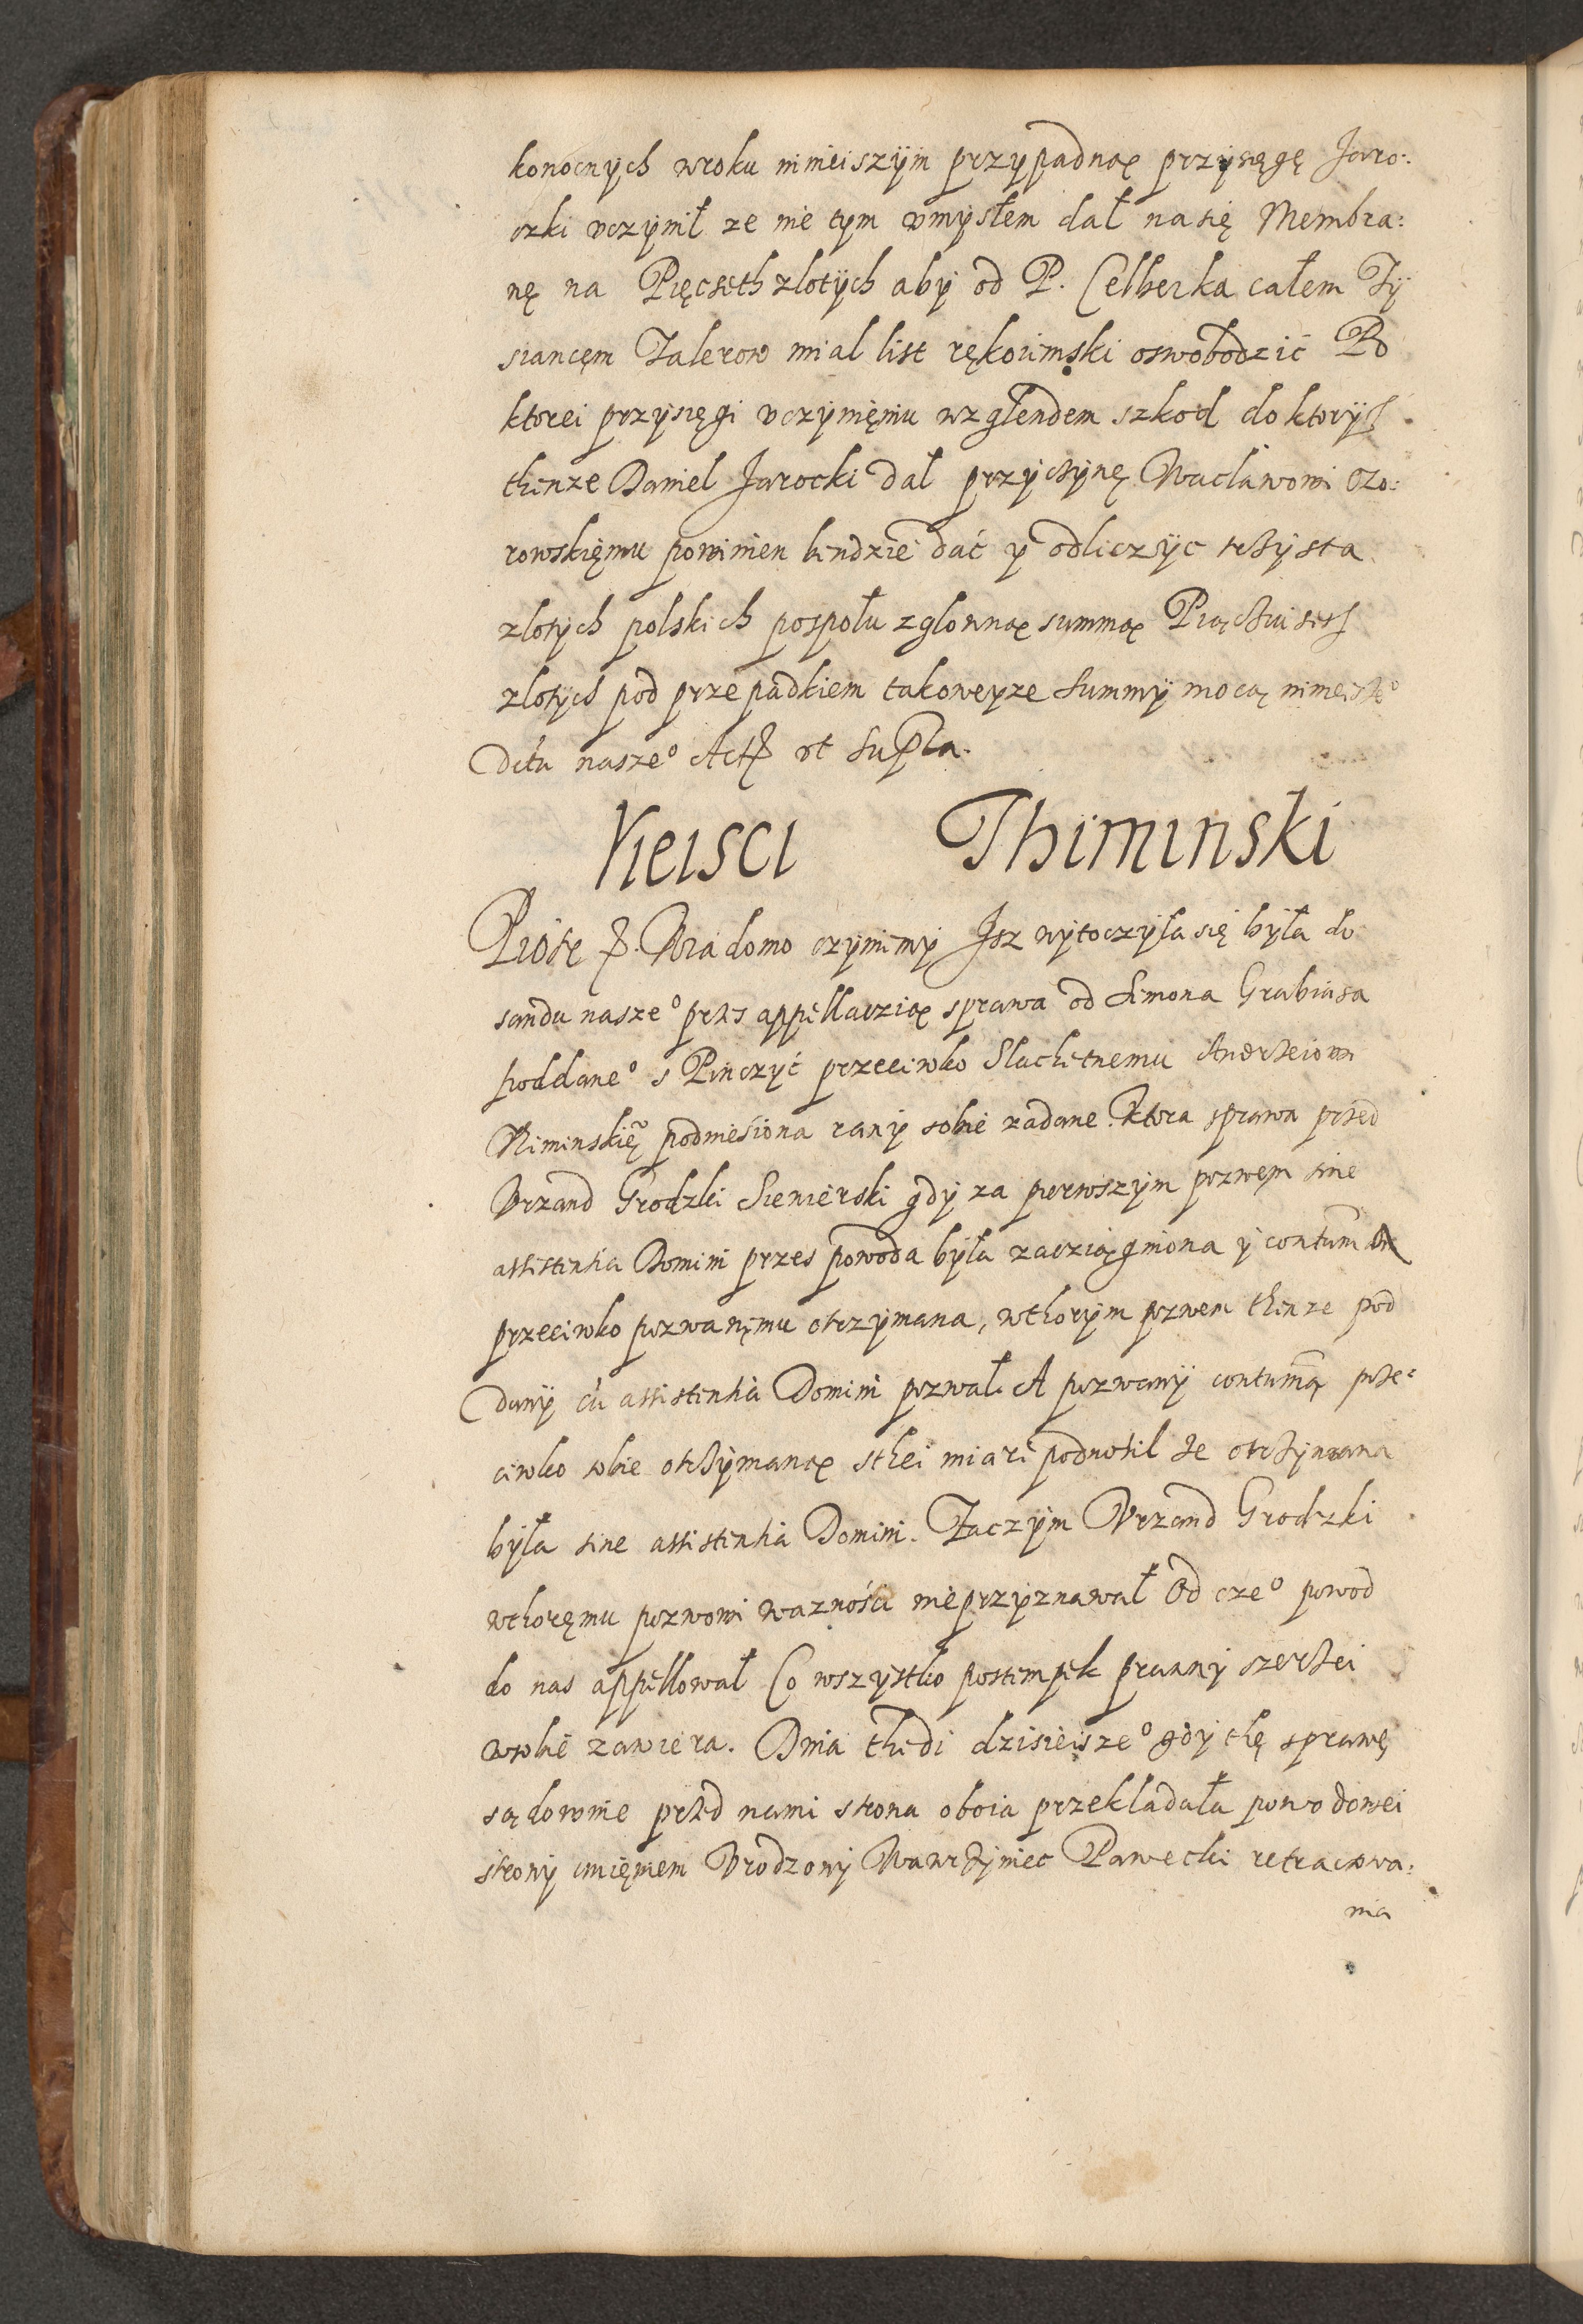 konocnÿch wroku ninieiszÿm przypadnąę przysięgę Jaro:
czki vczynił ze nie tym vmysłem dał nasię Membra:
nę na Pięcseth zlotÿch aby od P. Celberka całem Tÿ
siancęm Talerow mial list rękoiimski oswobodzić Po
ktorei przysięgi vczynięniu wzglendem szkod do ktorÿch
thenze Daniel Jarocki dał przyczynę Wacławowi Ozo:
rowskięmu powinien bendzie dać y odliczÿc trzysta
zlotych polskich pospołu zglownąę summąę Piąciuset
zlotÿch pod przepadkiem takoweyze summÿ mocą ninieisze°
Dctu nasze° Act ut supra.
Kieisci Thiminski
Piotr. Wiadomo czynimÿ Isz wytoczyła się była do
sandu nasze° przes appellaczią sprawa od Simona Grabiasa
poddane° s Pinczyć przeciwko Slachetnemu Andrzeiowi
podniesiona rany sobie zadane. Ktora sprawa przed
Vrzand Grodzki Siewierski gdy za pierwszym pozwem sine
assistentia Domini przes powoda była zacziągniona y contuma
przeciwko pozwanęmu otrzymana, wthorym pozwem thenze pod
dany cu assistentia Domini pozwał. A pozwanÿ contuma prze:
ciwko sobie otrzÿmanąę sthei miari podnosil ze otrzymana
była sine assistentia Domini. Zaczym Vrzand Grodzki
wthoręmu pozwowi wazności nieprzyznawał Od cze° powod
do nas appellował Co wszystko postempek prawny szerzei
wsobie zawiera. Dnia thedi dzisieisze° gdy thę sprawę
sądownie przed nami strona oboia przekładała powodowei
strony imięniem Vrodzony Wawrzyniec Pawecki retractowa:
nia